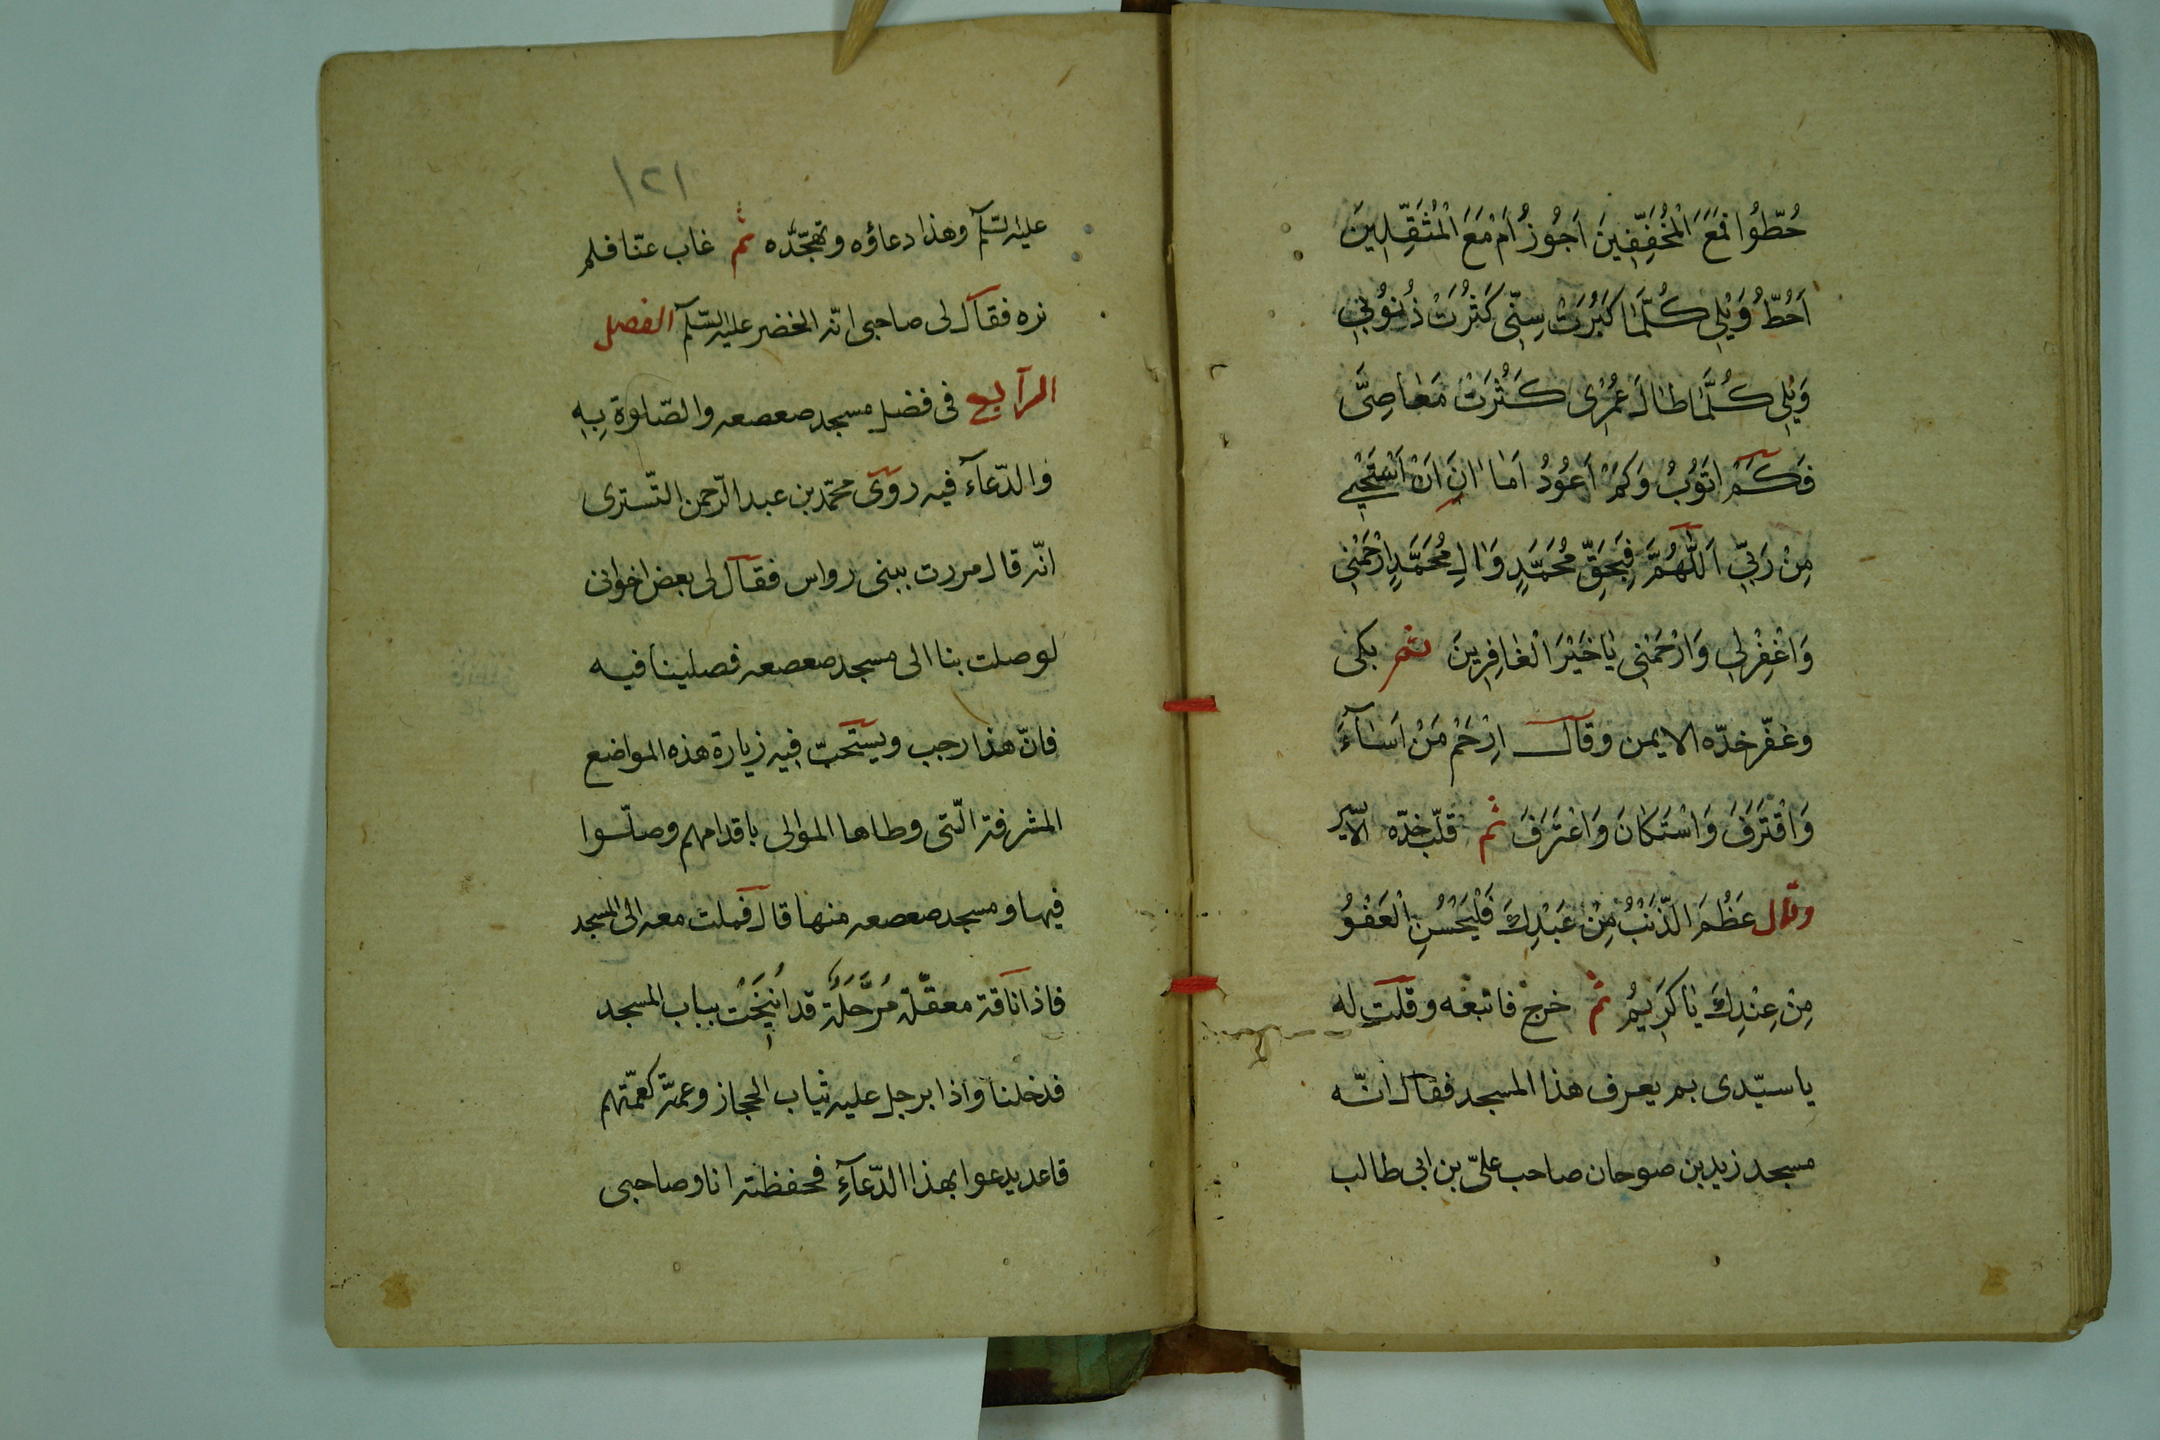 حُطُّوا فَمَعَ الْمُخِفِّفِينَ اَجُوزُ اَمْ مَعَ الْمُثَقِّلِينَ
اَحُطُّ وَيْلِي كُلَّمَا كَبُرَتْ سِنِّى كَثُرَتْ ذُنُوُبِي
وَيْلِي كُلَّمَا طَالَ عُمْرِى كَثُرَتْ مَعٰاصِىَّ
فَكَمْ اَتُوبُ وَكَمْ اَعُودُ اَمٰا اٰنَ اَنْ اَسْتَحْيِي
مِنْ رَبِّي اَللّٰهُمَّ فَبِحَقِّ مُحَمَّدٍ وَاٰلِ مُحَمَّدٍ اِرْحَمْنِي
وَاغْفِرْلِي وَارْحَمْنِي يٰا خَيْرَ الْغٰافِرِينَ ثم بكى
وعفّر خدّه الايمن وقال اِرْحَمْ مَنْ اَسٰآءَ
وَاقْتَرَفَ وَاسْتَكٰانَ وَاعْتَرَفَ ثم قلّب خدّه الايسر
وقال عَظُمَ الذَّنْبُ مِنْ عَبْدِكَ فَلْيَحْسُنِ الْعَفْوُ
مِنْ عِنْدِكَ يٰا كَرِيمُ ثم خرج فاتبعه وقلت له
يا سيّدى بم يعرف هذا المسجد فقال انّه
مسجد زيد بن صوحان صاحب علىّ بن ابى طالب
١٢١
عليه السّلم وهذا دعاؤه وتهجّده ثم غاب عنّا فلم
نره فقال لى صاحبى انّه الخضر عليه السّلم الفصل
الرابع فى فضل مسجد صعصعه والصّلوة بِهِ
والدّعآء فيه روى محمّد بن عبد الرّحمن التّسترى
انّه قال مررت ببنى رواس فقال لى بعض اخوانى
لو صلت بنا الى مسجد صعصعه فصلينا فيه
فانّ هذا رجب ويستحبّ فيه زيارة هذه المواضع
المشرفة الّتى وطاها الموالى باقدامهم وصلّوا
فيها ومسجد صعصعه منها قال فملت معه الى المسجد
فاذا ناقة معقّلة مُرَحَّلَة قد اُنِيخَتْ بباب المسجد
فدخلنا واذا برجل عليه ثياب الحجاز وعمّة كعمّتهم
قاعد يدعوا بهذا الدّعآءِ فحفظته انا وصاحبى